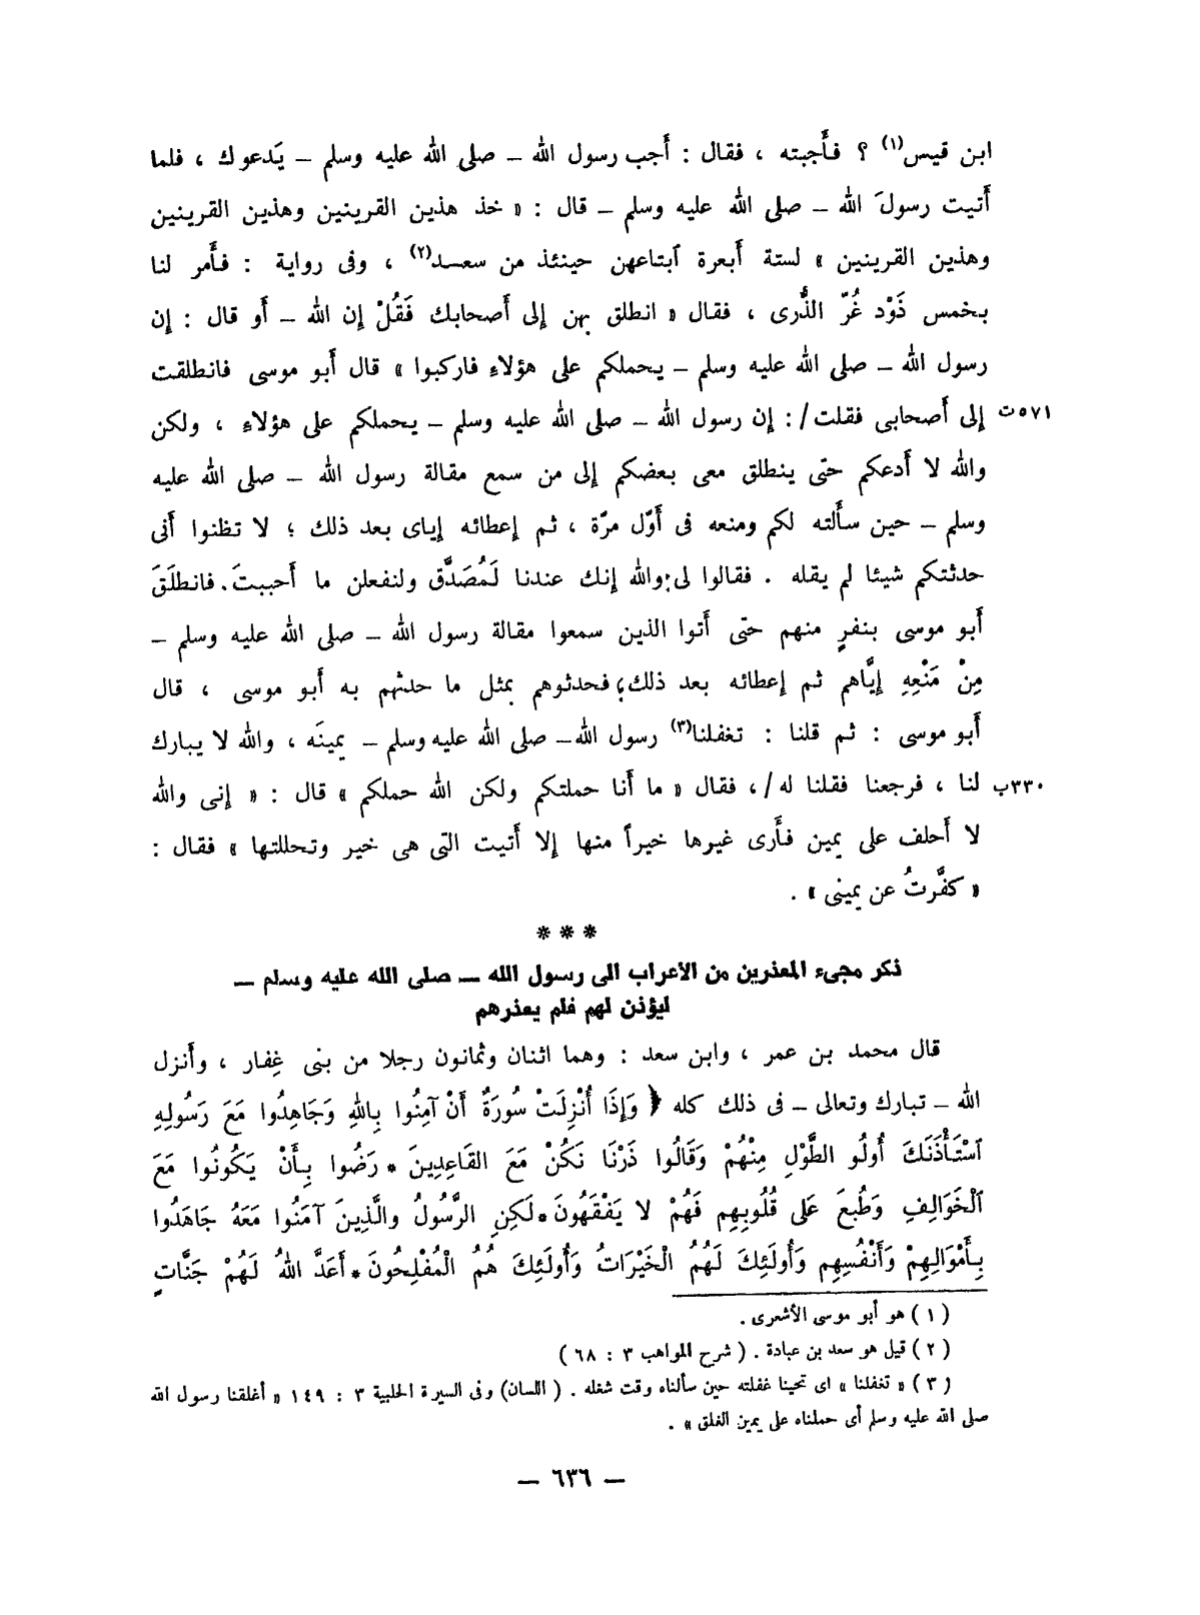 ابن قيس(١) ؟ فأجبته ، فقال : أجب رسول الله ــ صلى الله عليه وسلم ــ يَدعوك ، فلما
أتيت رسولَ الله ــ صلى الله عليه وسلم ــ قال : « خذ هذين القرينين وهذين القرينين
وهذين القرينين » لستة أبعرة ٱبتاعهن حينئذ من سعـد(٢) ، وفى رواية : فأمر لنا
بخمس ذَوْد غُرّ الذُّرى ، فقال « انطلق بهن إلى أصحابك فَقُلْ إن الله ــ أو قال : إن
رسول الله ــ صلى الله عليه وسلم ــ يحملكم على هؤلاءِ فاركبوا » قال أبو موسى فانطلقت
إلى أصحابى فقلت/ : إن رسول الله ــ صلى الله عليه وسلم ــ يحملكم على هؤلاءِ ، ولكن ٥٧١ت
والله لا أدعكم حتّى ينطلق معى بعضكم إلى من سمع مقالة رسول الله ــ صلى الله عليه
وسلم ــ حين سألته لكم ومنعه فى أوّل مرّة ، ثم إعطائه إياى بعد ذلك ؛ لا تظنوا أنى
حدثتكم شيئا لم يقله . فقالوا لى : والله إنك عندنا لَمُصَدَّق ولنفعلن ما أحببتَ . فانطلَقَ
أبو موسى بنفرٍ منهم حتى أتوا الذين سمعوا مقالة رسول الله ــ صلى الله عليه وسلم ــ
مِنْ مَنْعِهِ إيَّاهم ثم إعطائه بعد ذلك ؛ فحدثوهم بمثل ما حدثهم به أبو موسى ، قال
أبو موسى : ثم قلنا : تغفلنا(٣) رسول الله ــ صلى الله عليه وسلم ــ يمينَه ، والله لا يبارك
لنا ، فرجعنا فقلنا له/ ، فقال « ما أنا حملتكم ولكن الله حملكم » قال : « إنى والله ٣٣٠ب
لا أحلف على يمين فأرى غيرها خيراً منها إلا أتيت التى هى خير وتحللتها » فقال :
« كفَّرتُ عن يمينى » .
* * *
ذكر مجىء المعذرين من الأعراب الى رسول الله ــ صلى الله عليه وسلم ــ
ليؤذن لهم فلم يعذرهم
قال محمد بن عمر ، وابن سعد : وهما اثنان وثمانون رجلا من بنى غِفار ، وأنزل
الله ــ تبارك وتعالى ــ فى ذلك كله ﴿ وَإِذَا أُنْزِلَتْ سُورَةٌ أَنْ آمِنُوا بِاللهِ وَجَاهِدُوا مَعَ رَسُولِهِ
ٱسْتَأْذَنَكَ أُولُو الطَّوْلِ مِنْهُمْ وَقَالُوا ذَرْنَا نَكُنْ مَعَ القَاعِدِينَ * رَضُوا بِأَنْ يَكُونُوا مَعَ
ٱلْخَوَالِفِ وَطُبِعَ عَلى قُلُوبِهِم فَهُمْ لا يَفْقَهُونَ * لَكِنِ الرَّسُولُ والَّذِينَ آمَنُوا مَعَهُ جَاهَدُوا
بِأَمْوَالِهِمْ وَأَنْفُسِهِم وَأُولَئِكَ لَهُمُ الْخَيْرَاتُ وَأُولَئِكَ هُمُ الْمُفْلِحُونَ * أَعَدَّ اللهُ لَهُمْ جَنَّاتٍ
( ١ ) هو أبو موسى الأشعرى .
( ٢ ) قيل هو سعد بن عبادة . ( شرح المواهب ٣ : ٦٨ )
( ٣ ) « تغفلنا » اى تحينا غفلته حين سألناه وقت شغله . ( اللسان) وفى السيرة الحلبية ٣ : ١٤٩ « أغلقنا رسول الله
صلى الله عليه وسلم أى حملناه على يمين الغلق » .
ــ ٦٣٦ ــ